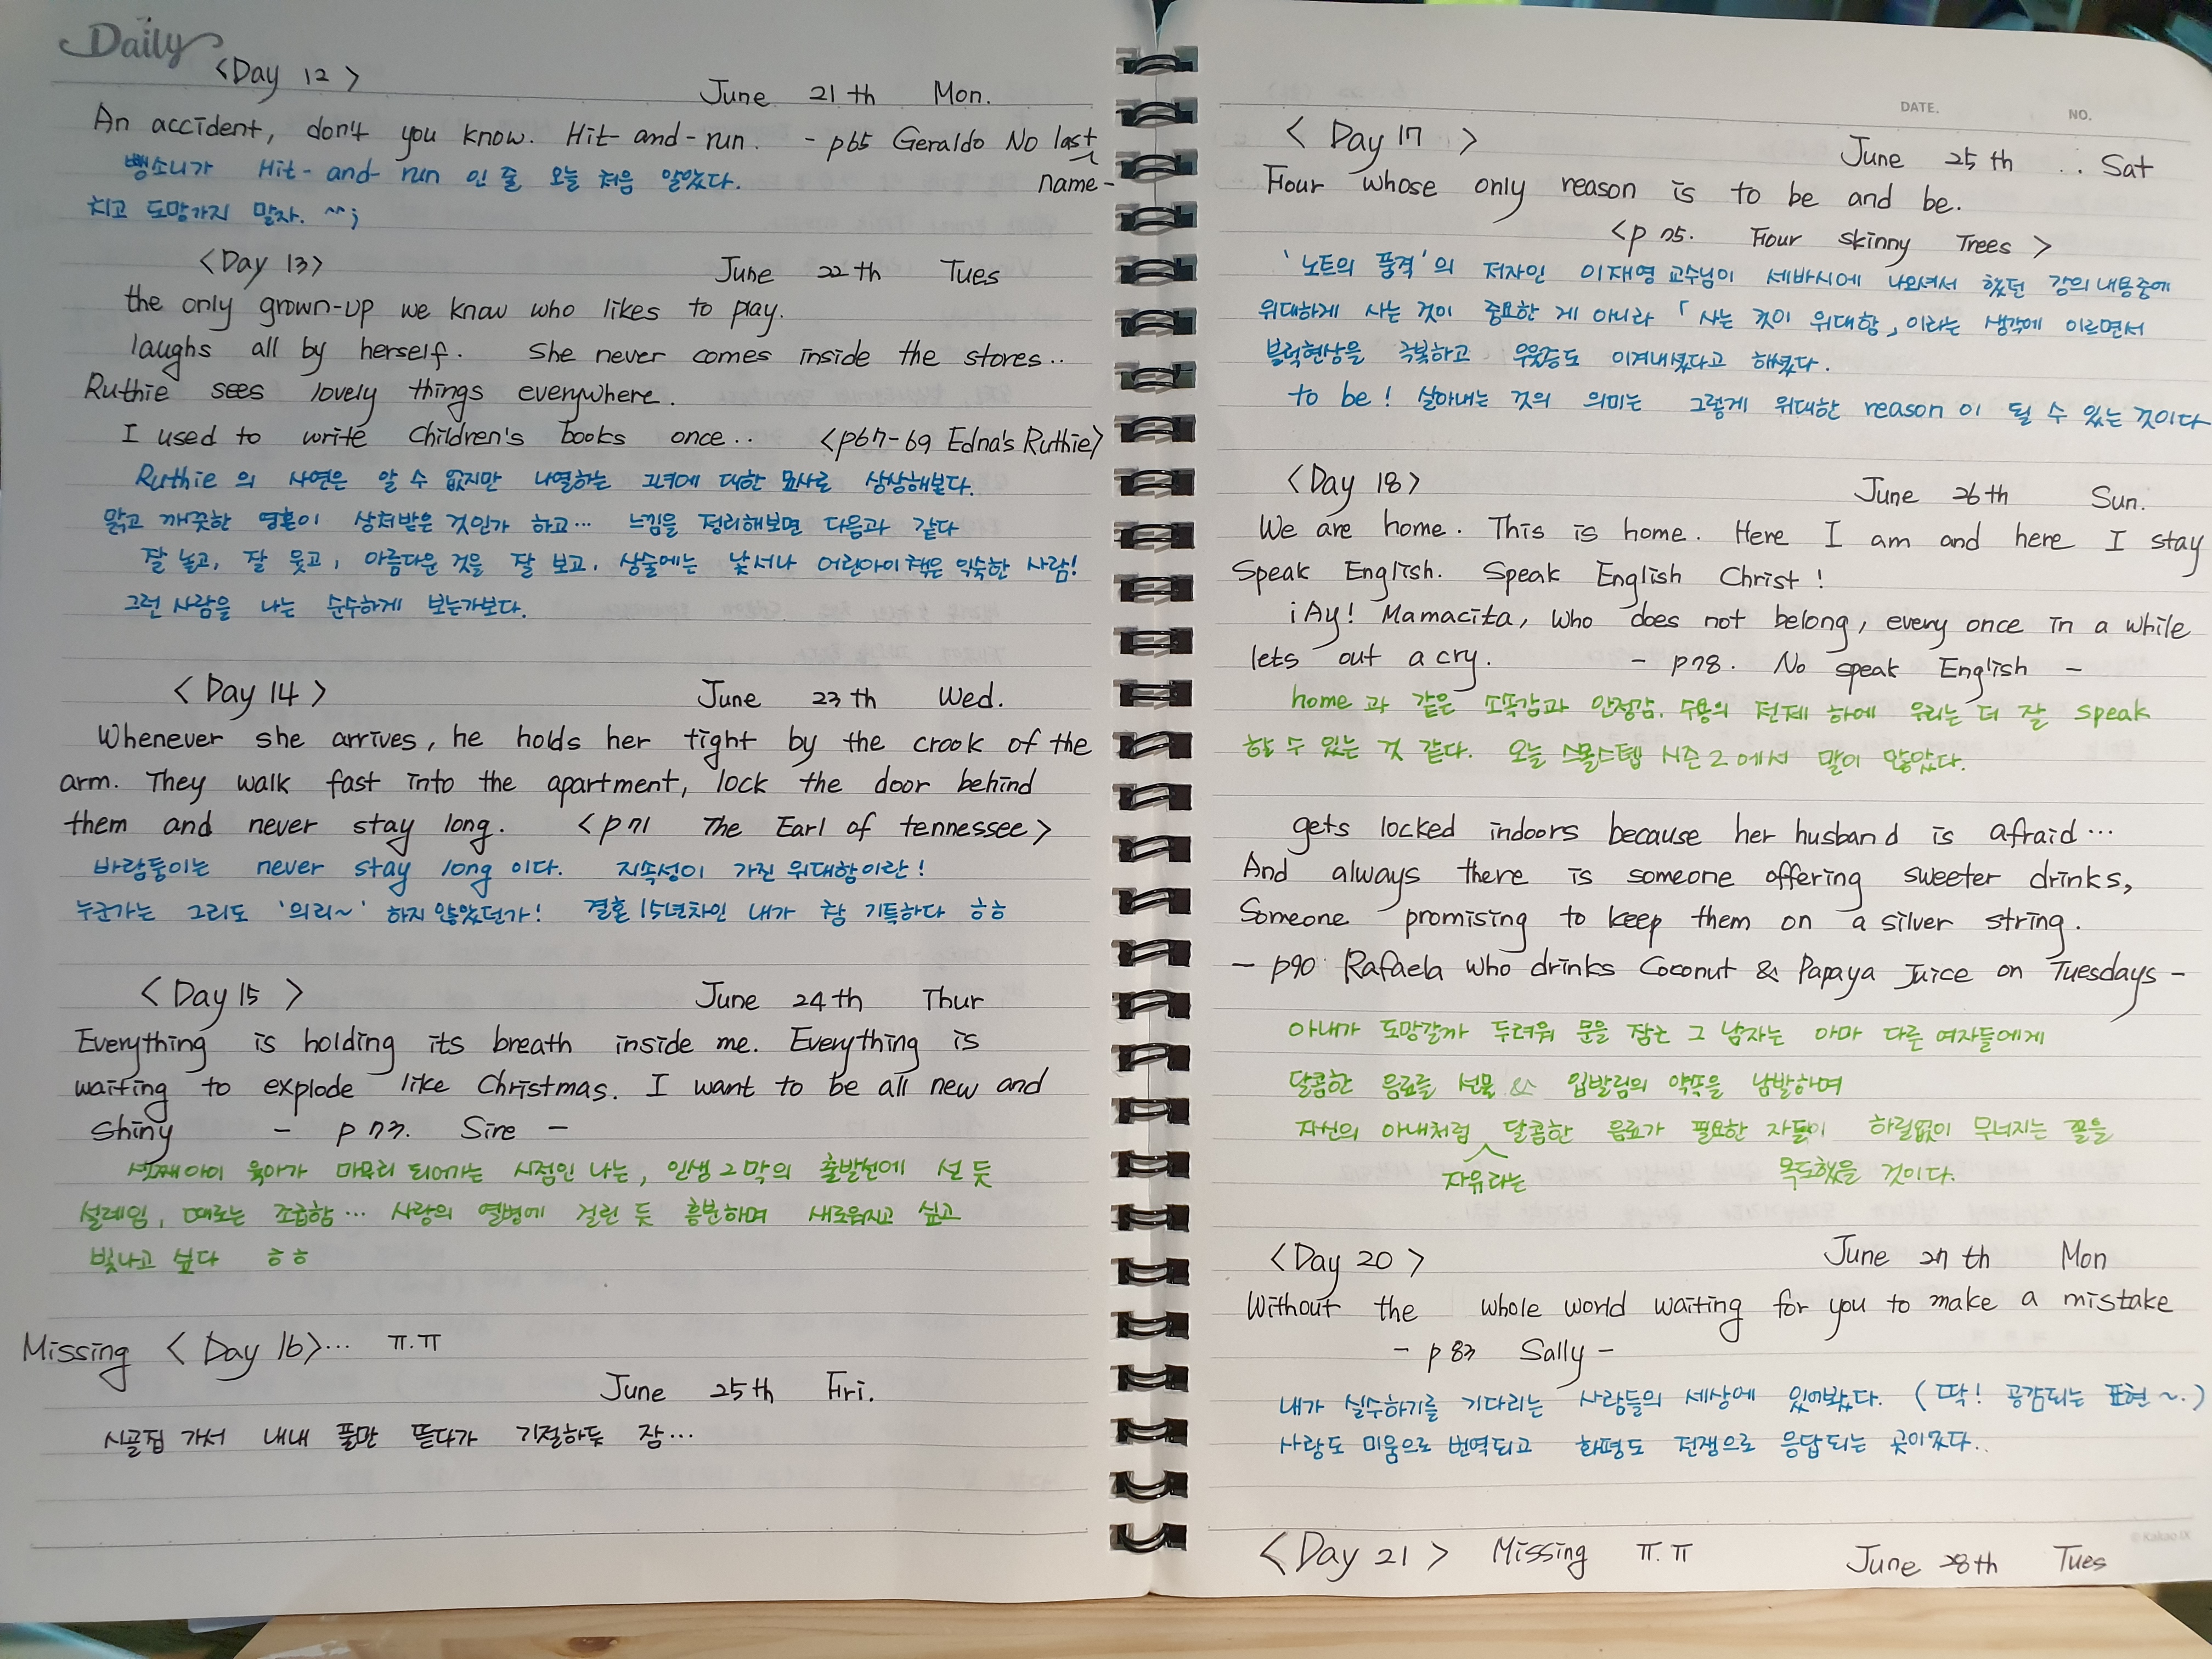 Daily
<Day 12>
June 21th Mon.
An accident, don't you know. Hit-and-run. - p65 Geraldo No last
name-
뺑소니가 Hit-and-run 인 줄 오늘 처음 알았다.
치고 도망가지 말자. ^^;
<Day 13>
June 22th Tues
the only grown-up we know who likes to play.
laughs all by herself. She never comes inside the stores..
Ruthie sees lovely things everywhere.
I used to write children's books once.. <p67-69 Edna's Ruthie>
Ruthie 의 사연은 알 수 없지만 나열하는 그녀에 대한 묘사로 상상해본다.
맑고 깨끗한 영혼이 상처받은 것인가 하고... 느낌을 정리해보면 다음과 같다
잘 놀고, 잘 웃고, 아름다운 것을 잘 보고, 상술에는 낯서나 어린아이책은 익숙한 사람!
그런 사람을 나는 순수하게 보는가보다.
<Day 14>
June 23th Wed.
Whenever she arrives, he holds her tight by the crook of the
arm. They walk fast into the apartment, lock the door behind
them and never stay long. <p71 The Earl of tennessee>
바람둥이는 never stay long 이다. 지속성이 가진 위대함이란!
누군가는 그리도 '의리~' 하지 않았던가! 결혼 15년차인 내가 참 기특하다 ㅎㅎ
<Day 15>
June 24th Thur
Everything is holding its breath inside me. Everything is
waiting to explode like Christmas. I want to be all new and
shiny - p73. Sire -
셋째아이 육아가 마무리 되어가는 시점인 나는, 인생 2막의 출발선에 선 듯
설레임, 때로는 조급함... 사랑의 열병에 걸린 듯 흥분하며 새로워지고 싶고
빛나고 싶다 ㅎㅎ
Missing <Day 16>... ㅠ.ㅠ
June 25th Fri.
시골집 가서 내내 풀만 뜯다가 기절하듯 잠...
DATE.
NO.
<Day 17>
June 25th .. Sat
Four whose only reason is to be and be.
<p75. Four skinny Trees>
'노트의 품격'의 저자인 이재영 교수님이 세바시에 나오셔서 했던 강의 내용중에
위대하게 사는 것이 중요한 게 아니라 「사는 것이 위대함」이라는 생각에 이르면서
블럭현상을 극복하고 우울증도 이겨내셨다고 하셨다.
to be! 살아내는 것의 의미는 그렇게 위대한 reason이 될 수 있는 것이다
<Day 18>
June 26th Sun.
We are home. This is home. Here I am and here I stay
Speak English. Speak English Christ!
¡Ay! Mamacita, who does not belong, every once in a while
lets out a cry. - p78. No speak English -
home 과 같은 소속감과 안정감, 수용의 전제 하에 우리는 더 잘 speak
할 수 있는 것 같다. 오늘 스몰스텝 시즌2에서 말이 많았다.
gets locked indoors because her husband is afraid...
And always there is someone offering sweeter drinks,
Someone promising to keep them on a silver string.
- p90 Rafaela who drinks Coconut & Papaya Juice on Tuesdays -
아내가 도망갈까 두려워 문을 잠근 그 남자는 아마 다른 여자들에게
달콤한 음료를 선물 & 입발림의 약속을 남발하며
자신의 아내처럼 달콤한 음료가 필요한 자들이 하릴없이 무너지는 꼴을
자유라는 목도했을 것이다.
<Day 20>
June 27th Mon
Without the whole world waiting for you to make a mistake
- p83 Sally -
내가 실수하기를 기다리는 사람들의 세상에 있어봤다. (딱! 공감되는 표현~.)
사랑도 미움으로 번역되고 화평도 전쟁으로 응답되는 곳이었다..
© Kakao IX
<Day 21> Missing ㅠ.ㅠ
June 28th Tues